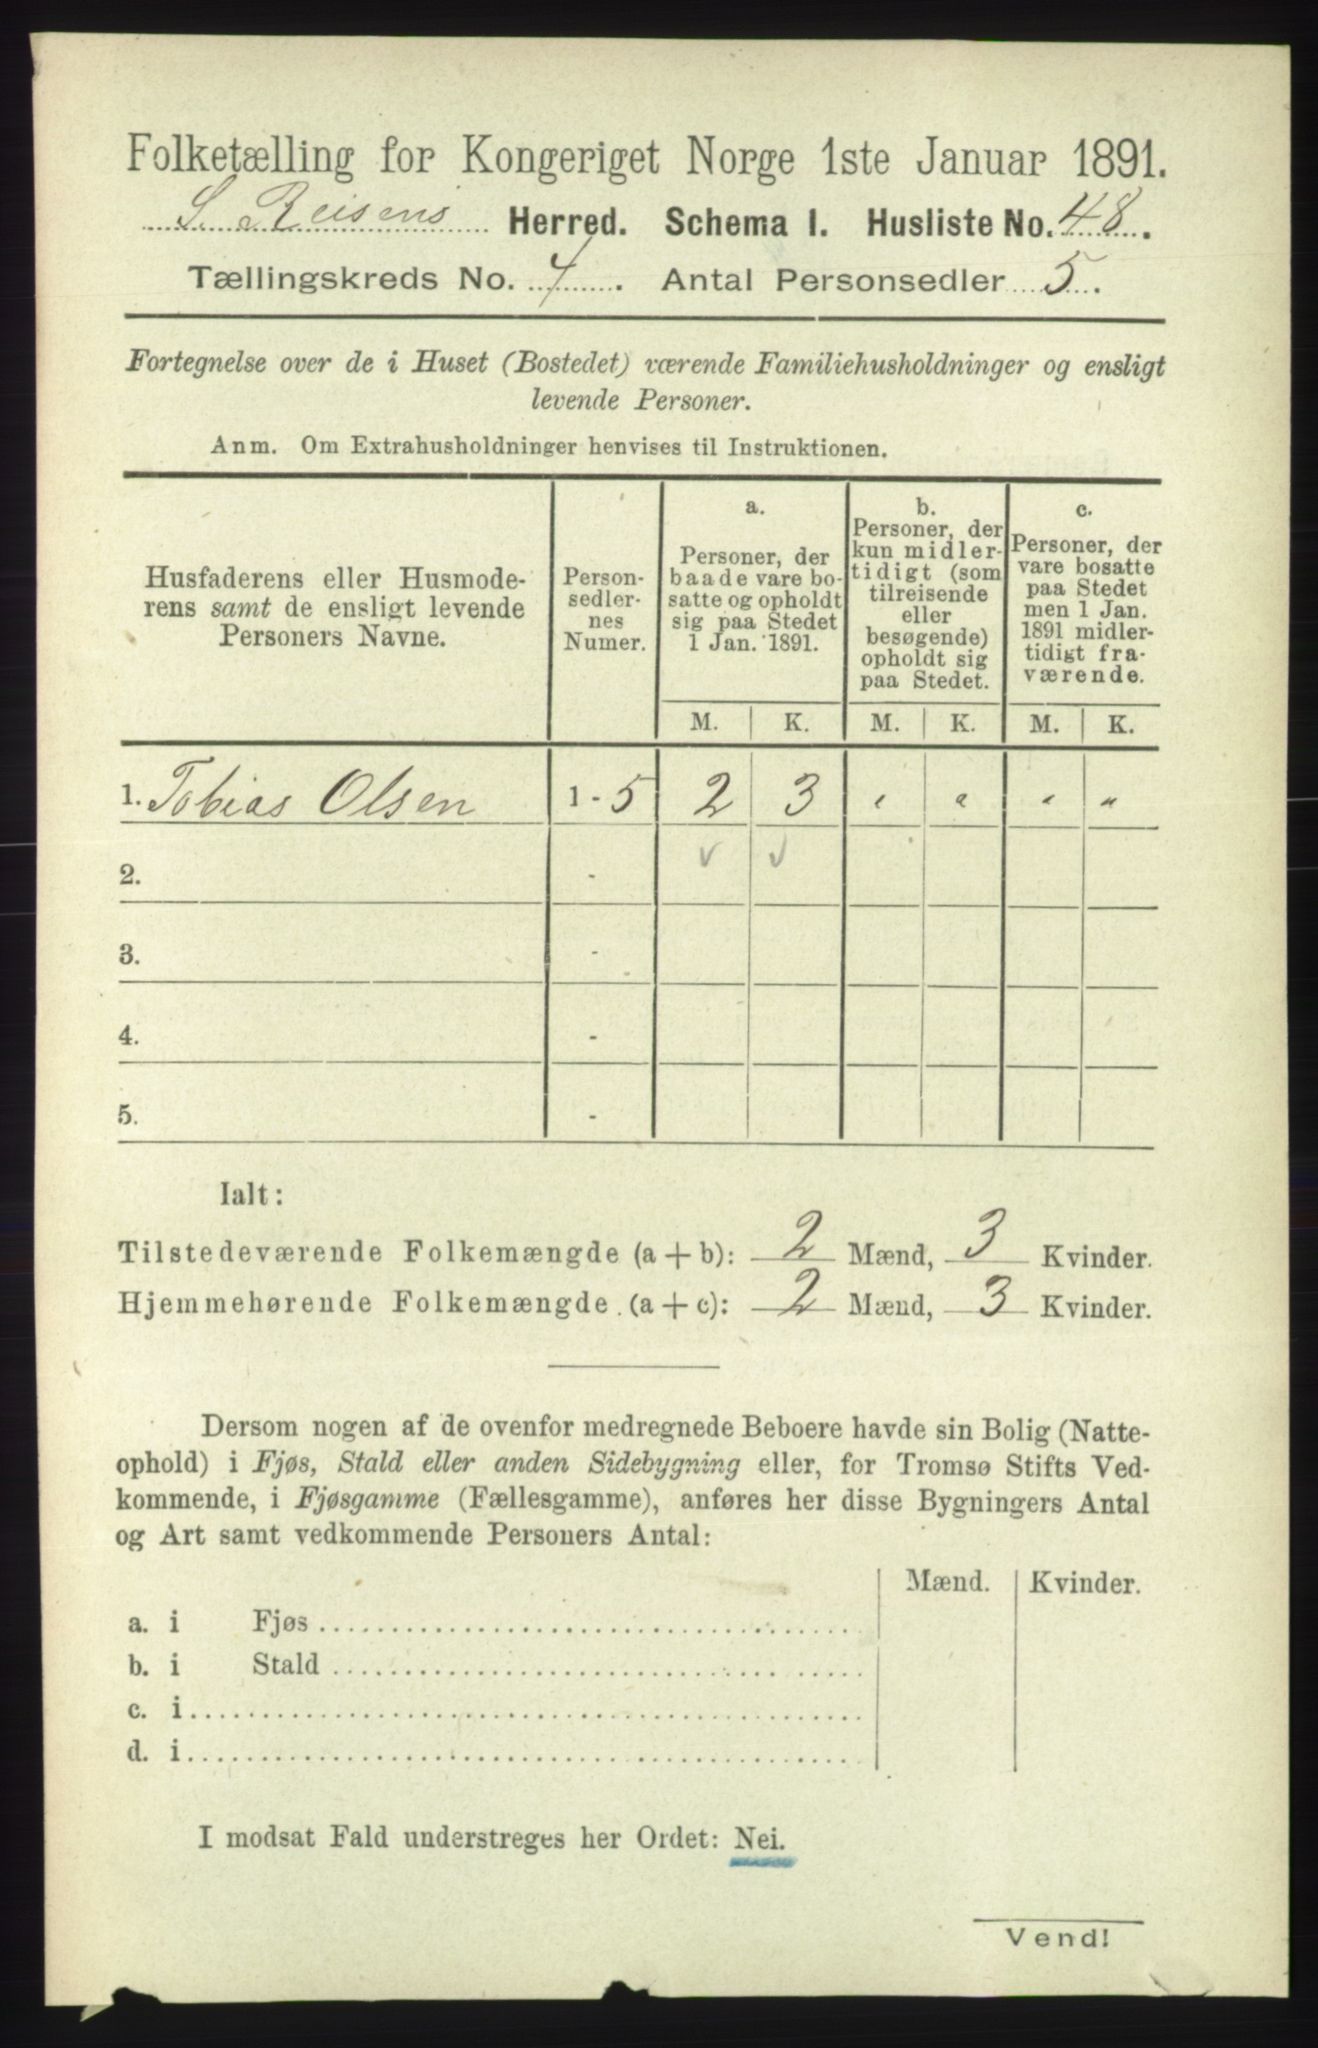 Folketælling for Kongeriget Norge 1ste Januar 1891.
S. Reisens Herred. Schema I. Husliste No. 48.
Tællingskreds No. 4. Antal Personsedler 5.
Fortegnelse over de i Huset (Bostedet) værende Familiehusholdninger og ensligt
levende Personer.
Anm. Om Extrahusholdninger henvises til Instruktionen.
Husfaderens eller Husmode-
rens samt de ensligt levende
Personers Navne.
Person-
sedler-
nes
Numer.
a.
Personer, der
baade vare bo-
satte og opholdt
sig paa Stedet
1 Jan. 1891.
b.
Personer, der
kun midler-
tidigt (som
tilreisende
eller
besøgende)
opholdt sig
paa Stedet.
c.
Personer, der
vare bosatte
paa Stedet
men 1 Jan.
1891 midler-
tidigt fra-
værende.
M. K. M. K. M. K.
1. Tobias Olsen 1 - 5 2 3 " " " "
2. -
3. -
4. -
5. -
Ialt:
Tilstedeværende Folkemængde (a + b): 2 Mænd, 3 Kvinder.
Hjemmehørende Folkemængde (a + c): 2 Mænd, 3 Kvinder.
Dersom nogen af de ovenfor medregnede Beboere havde sin Bolig (Natte-
ophold) i Fjøs, Stald eller anden Sidebygning eller, for Tromsø Stifts Ved-
kommende, i Fjøsgamme (Fællesgamme), anføres her disse Bygningers Antal
og Art samt vedkommende Personers Antal:
Mænd. Kvinder.
a. i Fjøs
b. i Stald
c. i
d. i
I modsat Fald understreges her Ordet: Nei.
Vend!